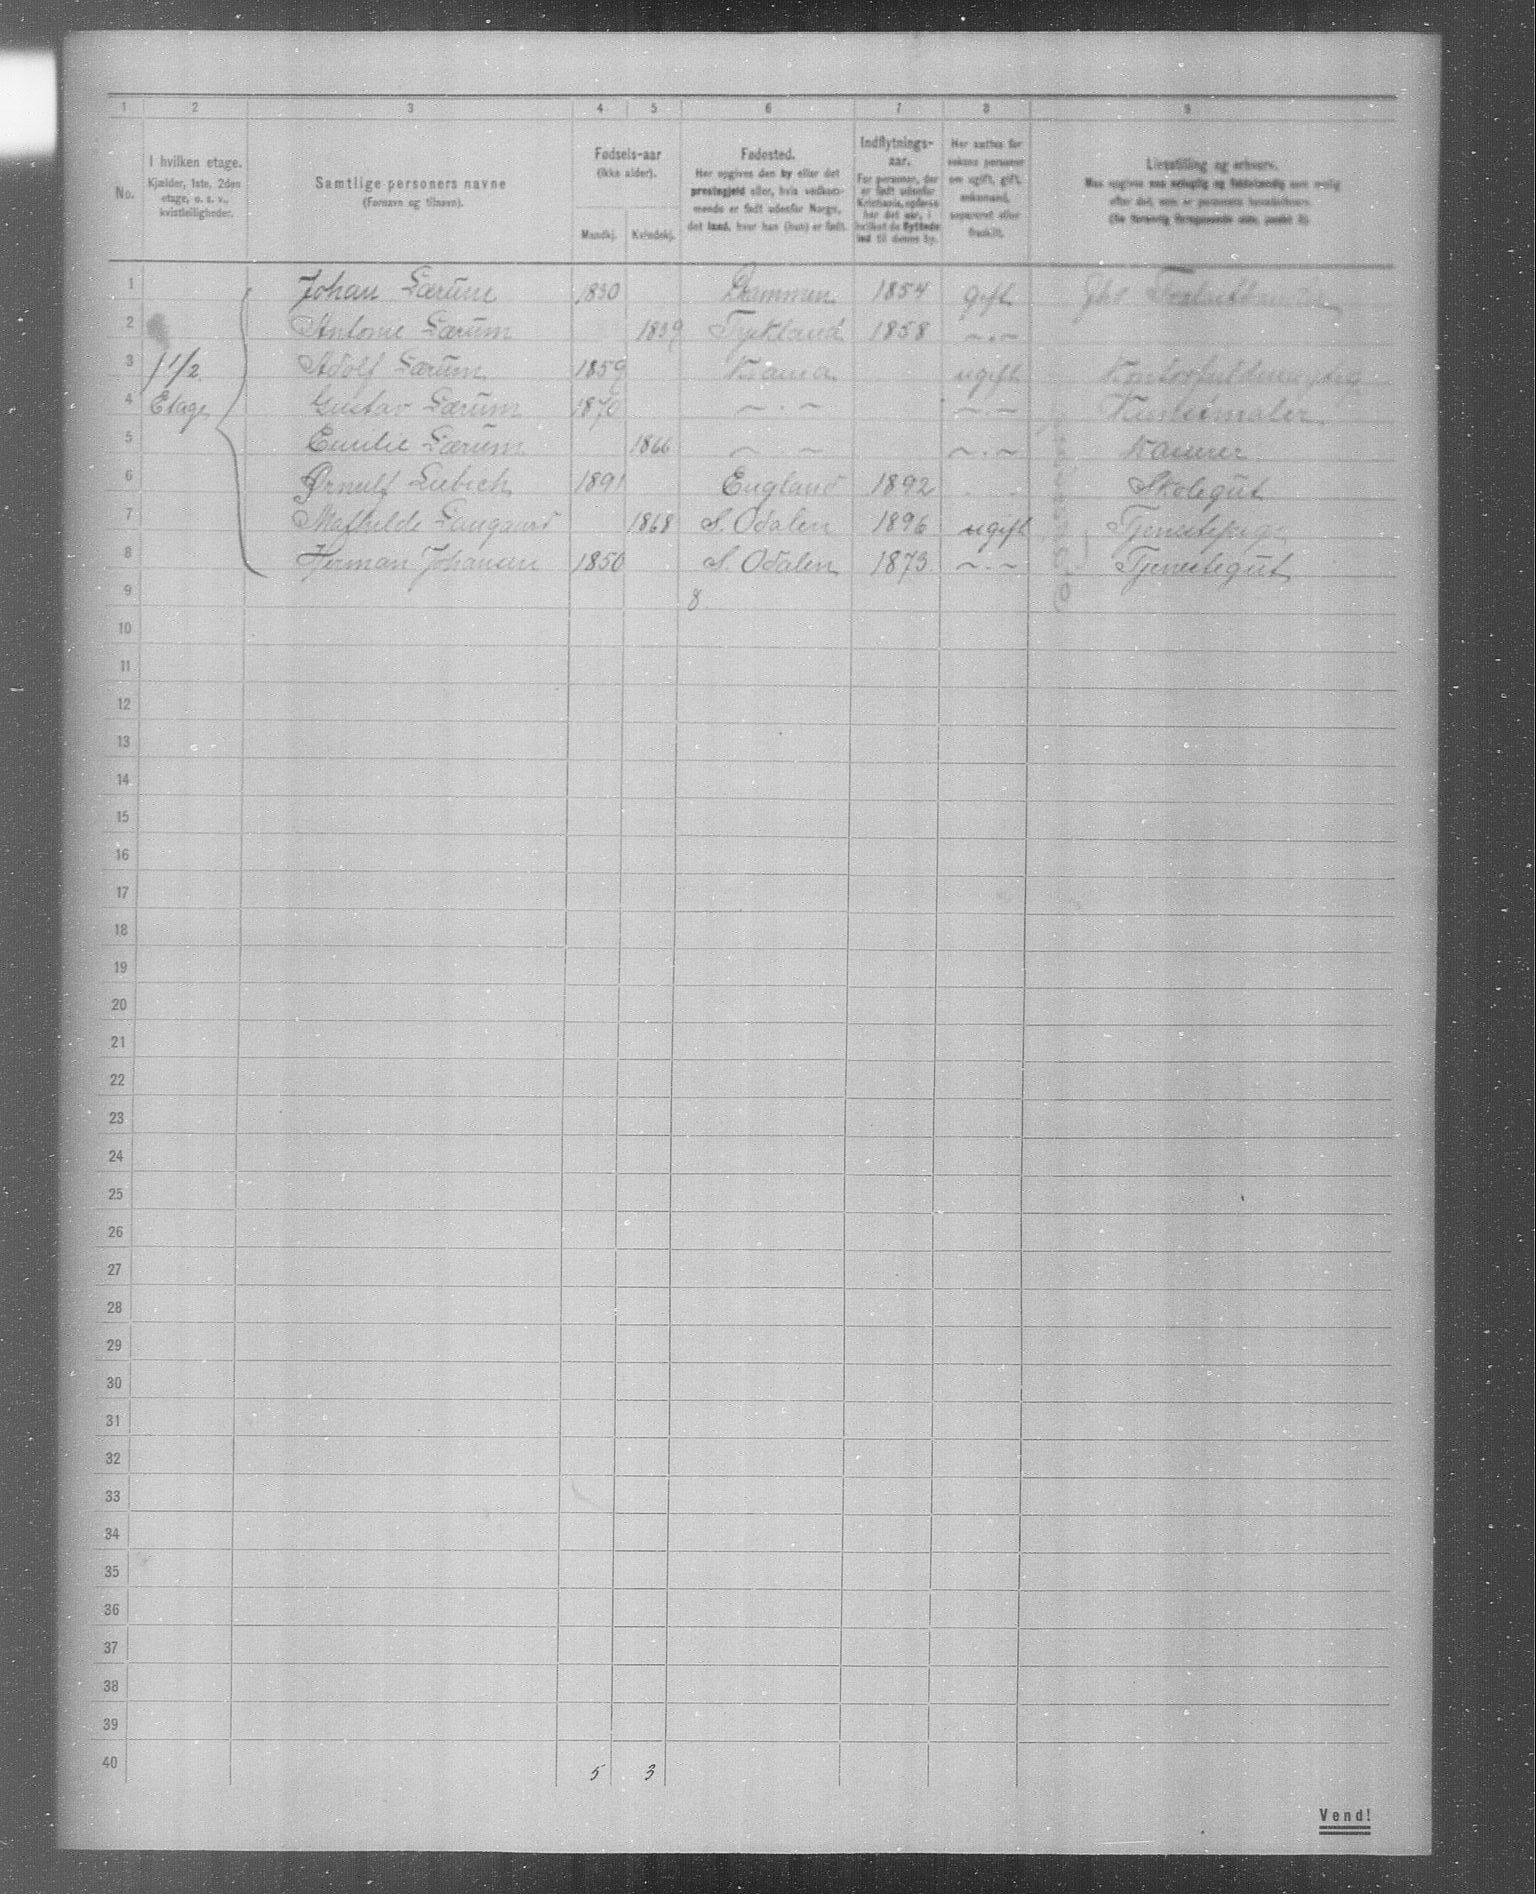 1 2 3 4 5 6 7 8 9
No.
I hvilken etage.
Kjælder, 1ste, 2den
etage, o. s. v.,
kvistleiligheder.
Samtlige personers navne
(Fornavn og tilnavn).
Fødsels-aar
(ikke alder).
Mandkj. Kvindekj.
Fødested.
Her opgives den by eller det
prestegjeld eller, hvis vedkom-
mende er født udenfor Norge,
det land, hvor han (hun) er født.
Indflytnings-
aar.
For personer, der
er født udenfor
Kristiania, opføres
her det aar, i
hvilket de flyttede
ind til denne by.
Her anføres for
voksne personer
om ugift, gift,
enkemand,
separeret eller
fraskilt.
Livsstilling og erhverv.
1 Johan Lærum 1830 Drammen 1854 gift
2 Antonie Lærum 1839 Tyskland 1858 —„—
3 1 1/2 Adolf Lærum 1859 Kr.ania ugift Kontorfuldmægtig
4 Etage Gustav Lærum 1870 —„— —„— Kunstmaler
5 Emilie Lærum 1866 — — —„—
6 Ørnulf Liebich 1891 England 1892 Skolegut
7 Mathilde Langaard 1868 S. Odalen 1896 ugift Tjenestepige
8 Herman Johansen 1850 S. Odalen 1873 —„— Tjenestegut
9 8
10
11
12
13
14
15
16
17
18
19
20
21
22
23
24
25
26
27
28
29
30
31
32
33
34
35
36
37
38
39
40 5 3
Vend!